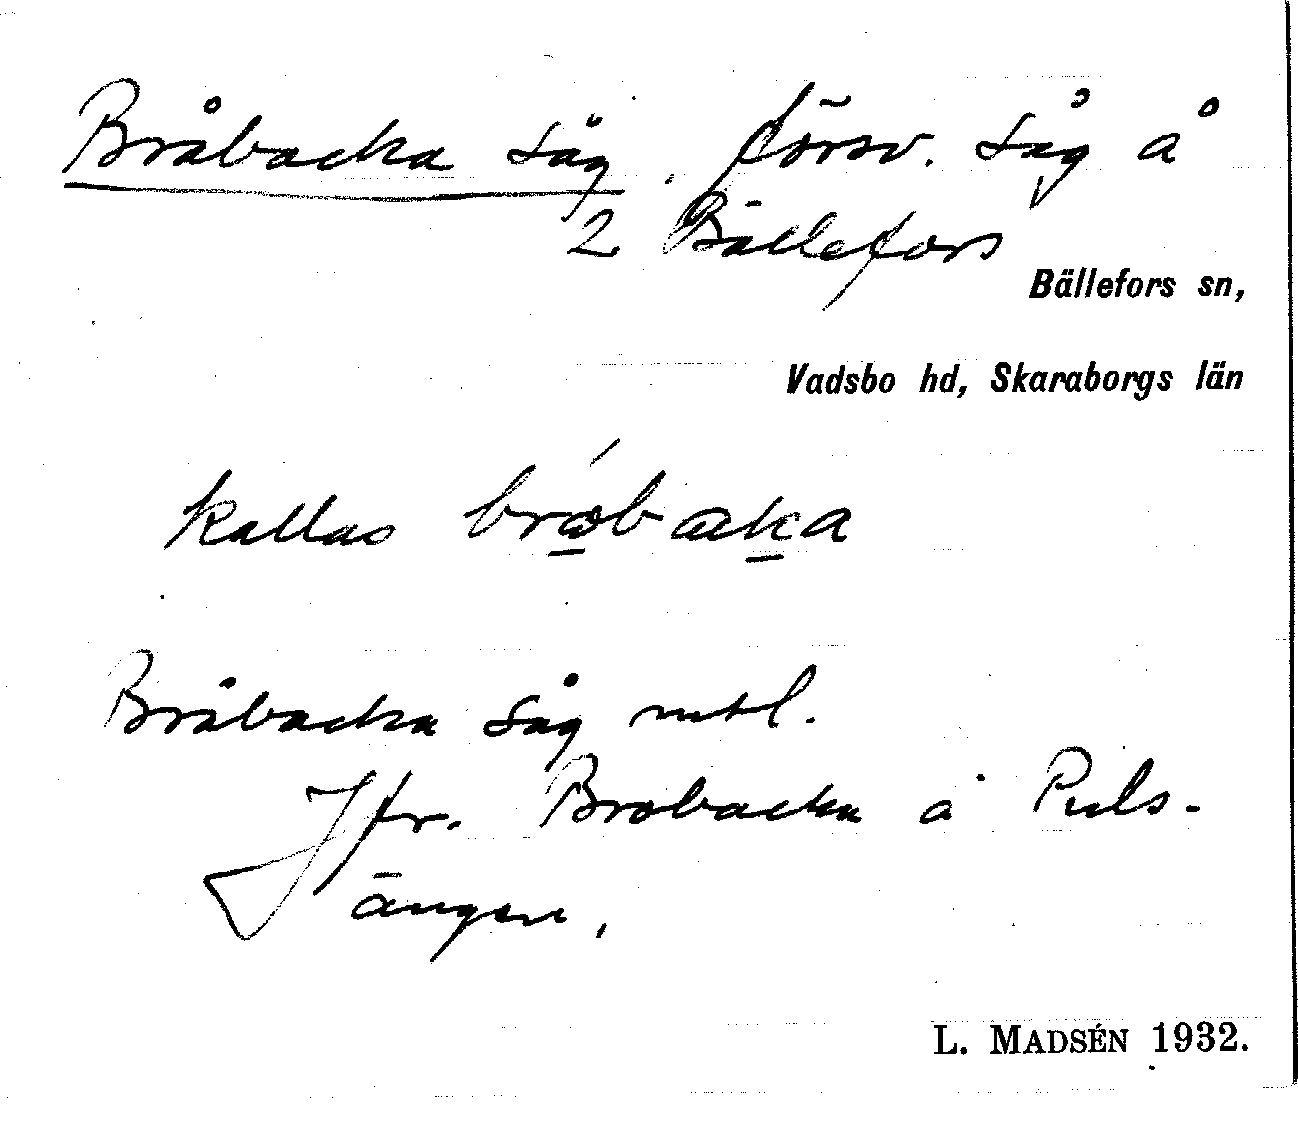 Bråbacka såg, försv. såg å
2 Bällefors
Bällefors sn,
Vadsbo hd, Skaraborgs län
kallas
Bråbacka såg mtl.
Jfr. Brobacka å Puls-
ängen,
L. MADSÉN 1932.